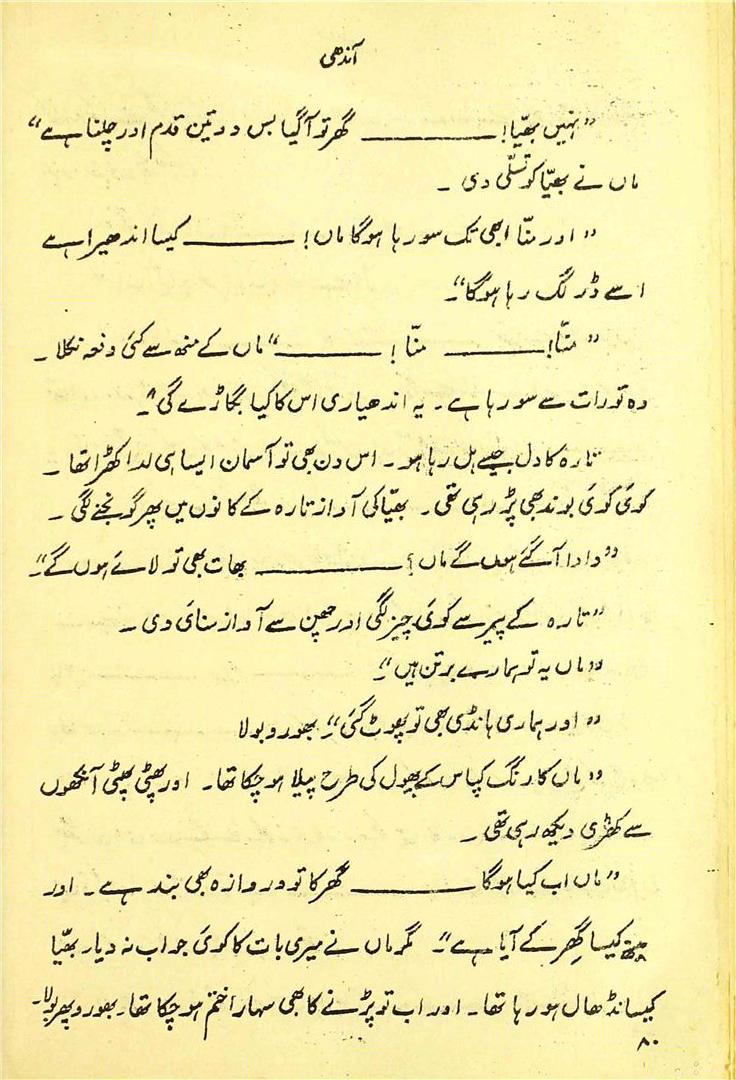 آندھی
"نہیں بھیّا! ــــــــــــ گھر تو آگیا بس دو تین قدم اور چلنا ہے"
ماں نے بھیّا کو تسلّی دی ۔
"اور منّا ابھی تک سو رہا ہوگا ماں! ــــــــــــ کیسا اندھیرا ہے
اسے ڈر لگ رہا ہوگا"۔
"منّا! ــــــــــــ منّا! ــــــــــــ" ماں کے منھ سے کئی دفعہ نکلا ۔
وہ تو رات سے سو رہا ہے ۔ یہ اندھیاری اس کا کیا بگاڑے گی"۔
تارہ کا دل جیسے ہل رہا ہو ۔ اس دن بھی تو آسمان ایسا ہی لدا کھڑا تھا ۔
کوئی کوئی بوند بھی پڑ رہی تھی ۔ بھیّا کی آواز تارہ کے کانوں میں پھر گونجنے لگی ۔
"دادا آگئے ہوں گے ماں؟ ــــــــــــ بھات بھی تو لائے ہوں گے"۔
"تارہ کے پیر سے کوئی چیز لگی اور چھن سے آواز سنائی دی ۔
"ماں یہ تو ہمارے برتن ہیں"۔
"اور ہماری ہانڈی بھی تو پھوٹ گئی"۔ بھورو بولا
"ماں کا رنگ کپاس کے پھول کی طرح پیلا ہو چکا تھا ۔ اور پھٹی پھٹی آنکھوں
سے کھڑی دیکھ رہی تھی ۔
"ماں اب کیا ہوگا ــــــــــــ گھر کا تو دروازہ بھی بند ہے ۔ اور
کیسا گھِر کے آیا ہے"۔ مگر ماں نے میری بات کا کوئی جواب نہ دیا۔ بھیّا
کیسا نڈھال ہو رہا تھا ۔ اور اب تو پڑنے کا بھی سہارا ختم ہو چکا تھا ۔ بھورو پھر بولا۔
۸۰